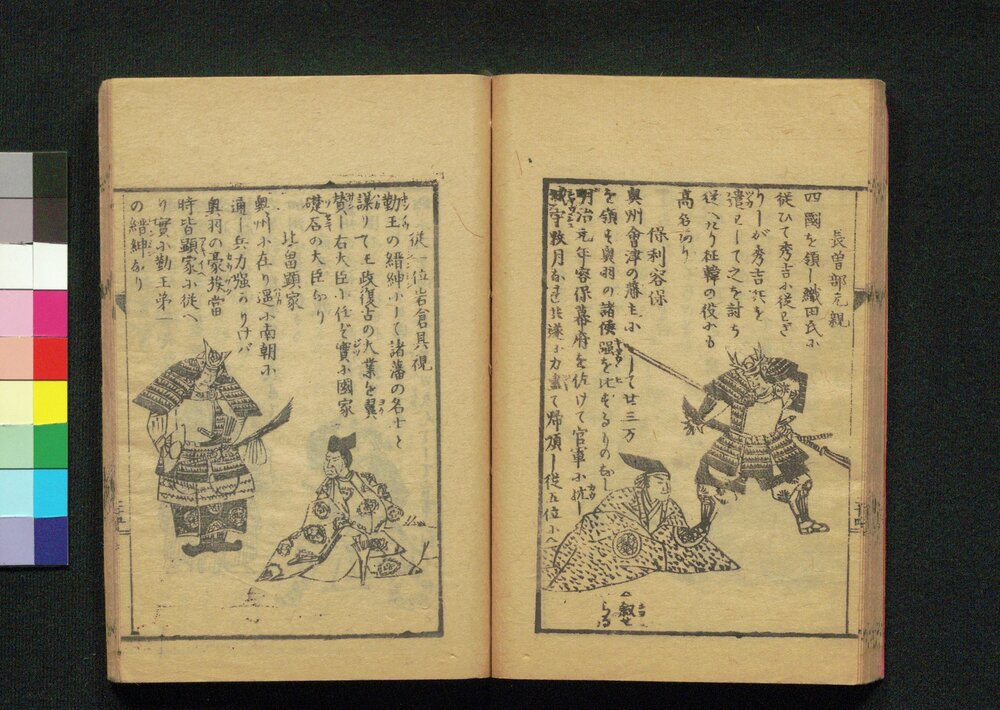 長曽部元親
四國を領し織田氏小
従ひて秀吉小従ハず
りしが秀吉兵を
遣ハして之を討ち
従へり征韓の役小も
高名あり
保利容保
奥州會津の藩主小して廿三万
を領す奥羽の諸侯強を比するものなし
明治元年容保幕府を佐けて官軍小抗し
城守数月なれど遂小力盡て帰順し従五位小
叙せ
らる
従一位岩倉具視
勤王の縉紳小して諸藩の名士と
謀りて王政復古の大業を翼
賛し右大臣小任ぜ實小國家
礎石の大臣なり
北畠顕家
奥州小在り遥小南朝小
通し兵力強かりけバ
奥羽の豪族當
時皆顕家小従へ
り實小勤王第一
の縉紳なり